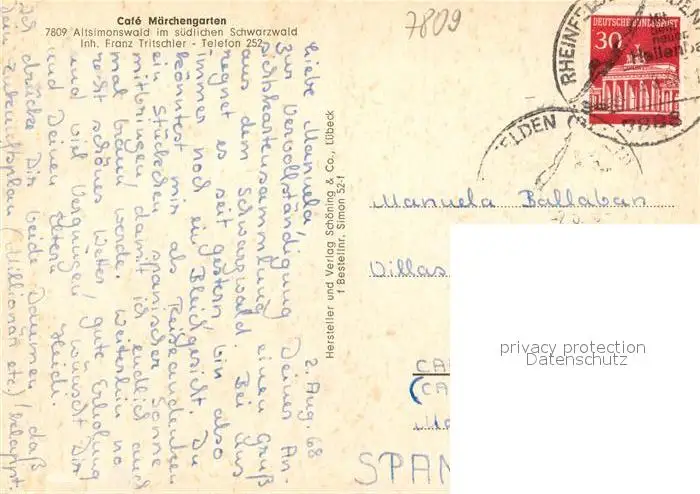 Café Märchengarten
7809 Altsimonswald im südlichen Schwarzwald
Inh. Franz Tritschler - Telefon 252
7809
2. Aug. 68
Liebe Manuela,
zur Vervollständigung Deiner An-
sichtskartensammlung einen Gruß
aus dem Schwarzwald. Bei uns
regnet es seit gestern, bin also
immer noch ein Bleichgesicht. Du
könntest mir als Reiseandenken
ein Stückchen spanischer Sonne
mitbringen, damit ich endlich auch
mal braun werde. Weiterhin noch
recht schönes Wetter, gute Erholung
und viel Vergnügen wünscht Dir
und Deinen Eltern Heidi.
Ich drücke Dir beide Daumen, daß
Dein Zukunftsplan (Millionär etc) klappt.
Hersteller und Verlag Schöning & Co., Lübeck
f Bestellnr. Simon 52-f
DEUTSCHE BUNDESPOST
30
RHEINFELDEN
7888
FELDEN
Manuela Ballaban
Villas
CA
(CA
SPAN
privacy protection
Datenschutz